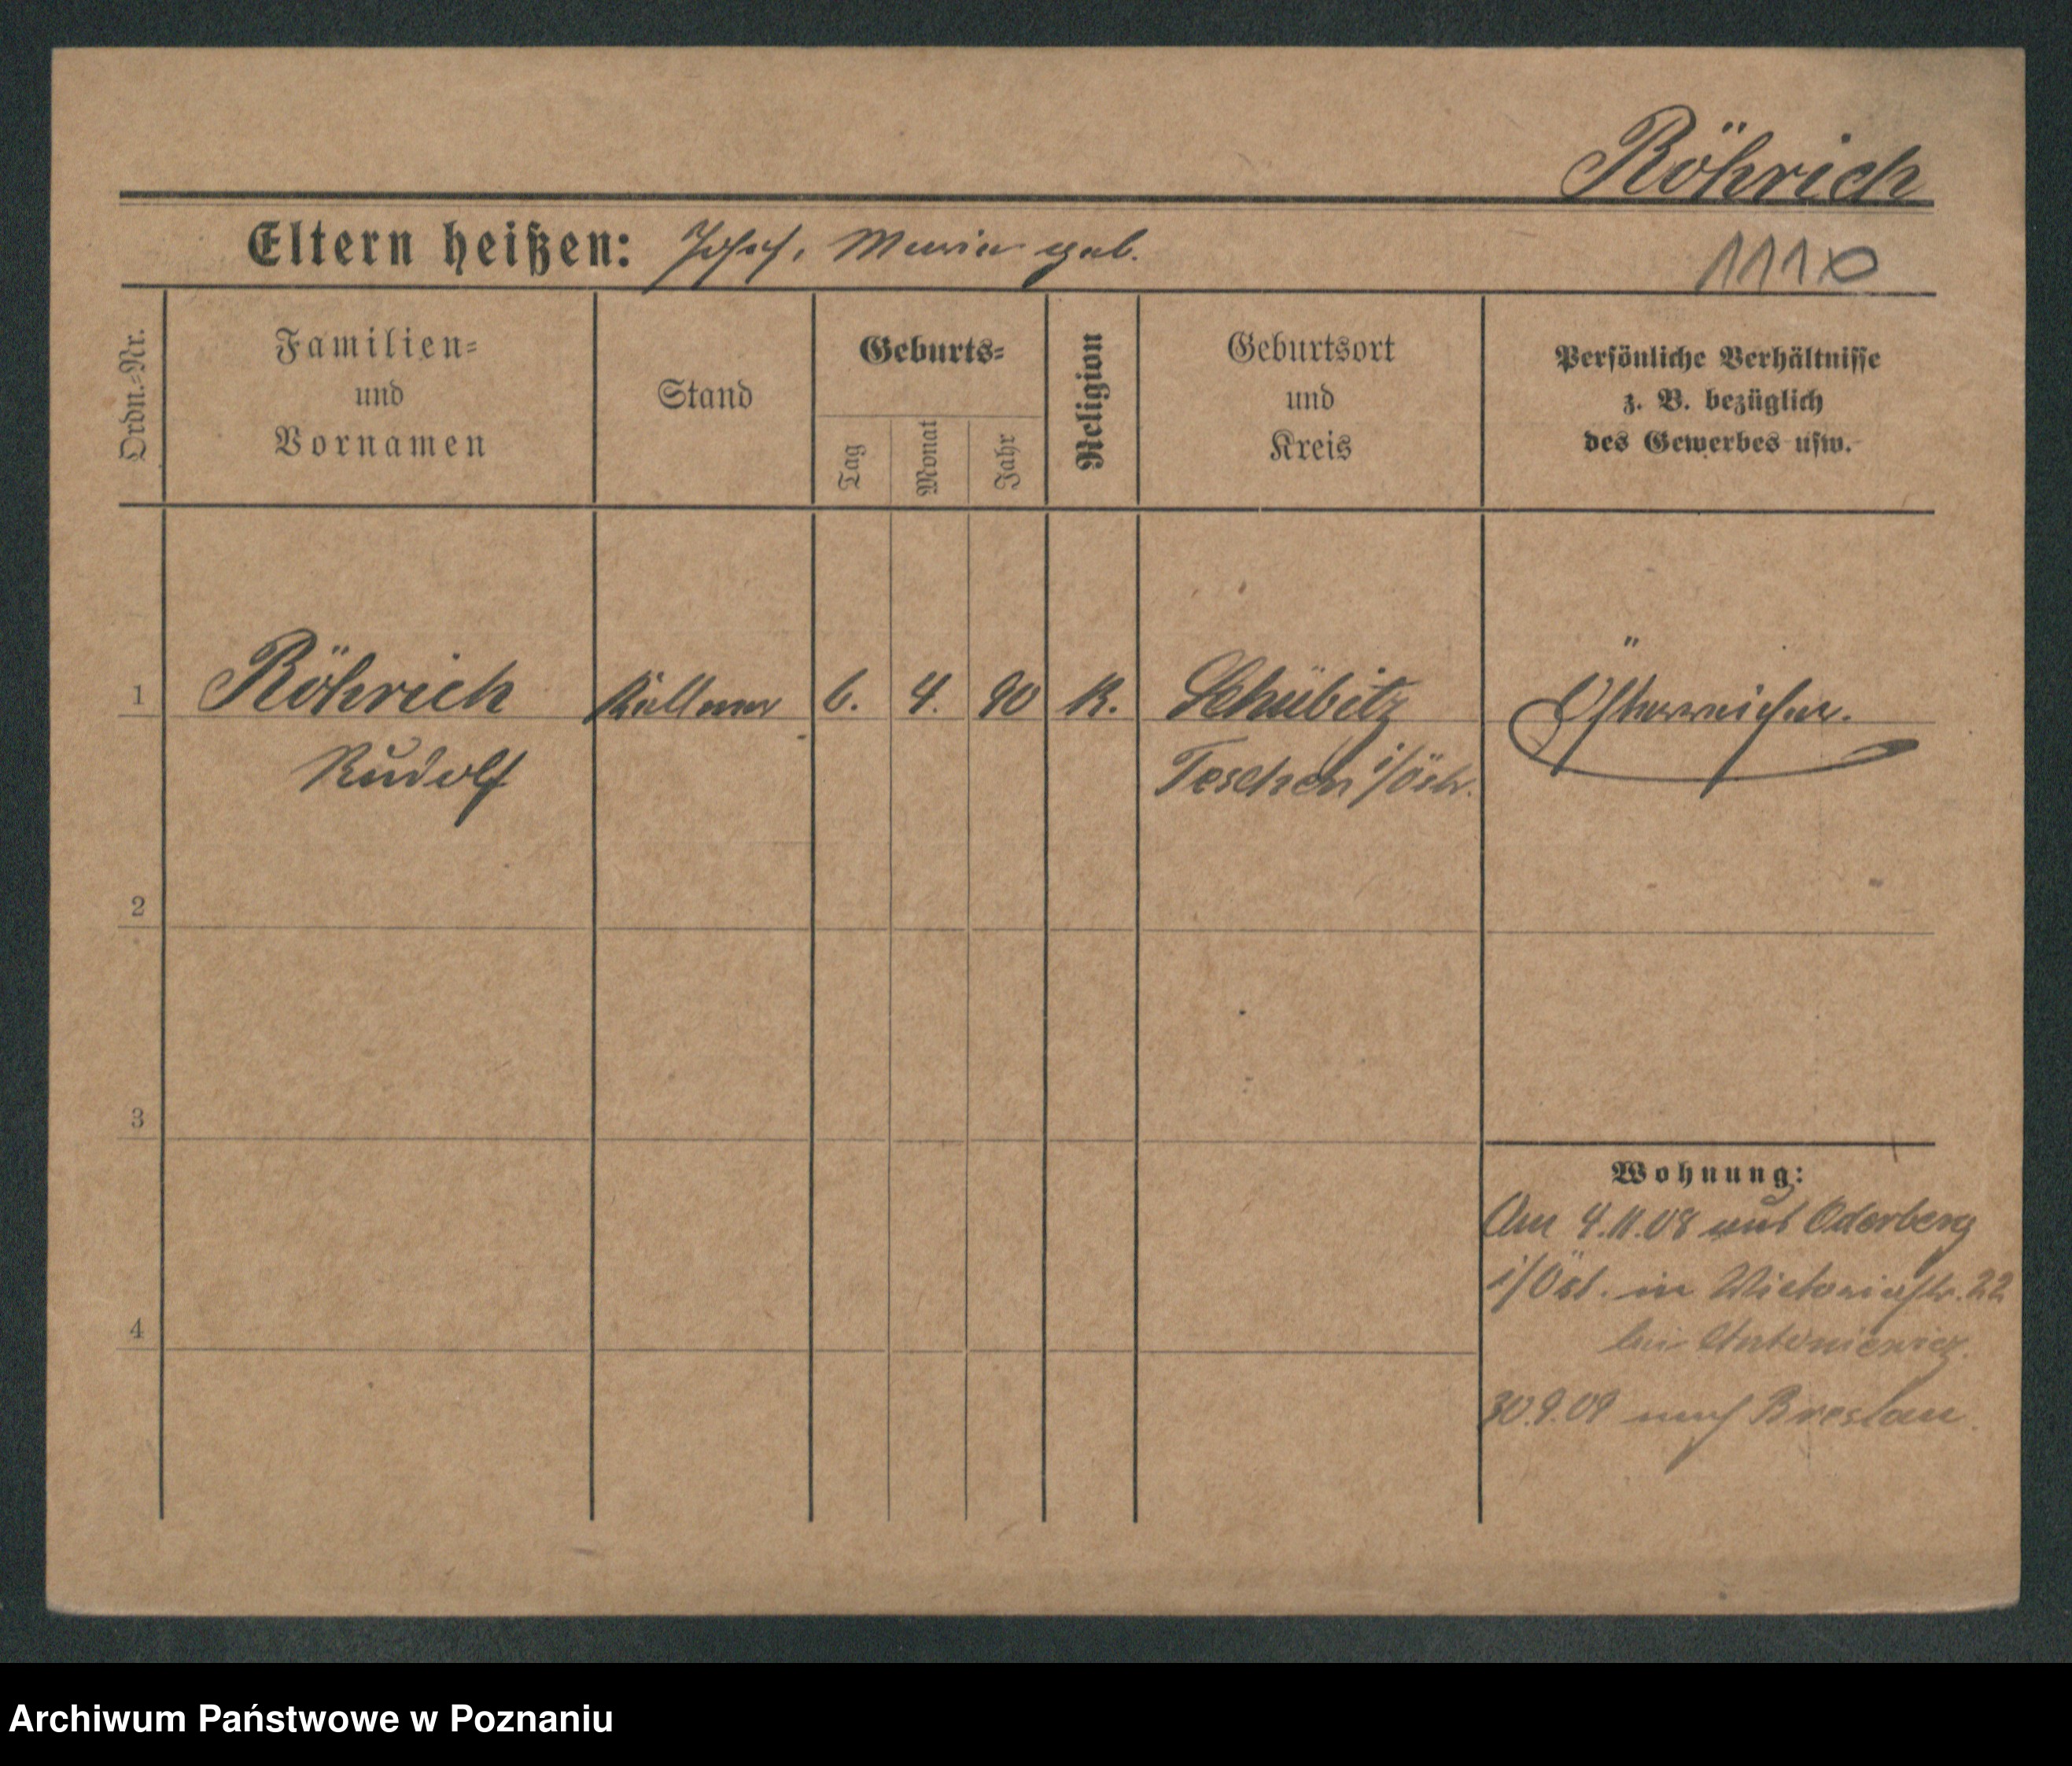 Röhrich
Eltern heißen: Josef, Maria geb.
1110
Ordn.-Nr.
Familien-
und
Vornamen
Stand
Geburts-
Tag
Monat
Jahr
Religion
Geburtsort
und
Kreis
Persönliche Verhältnisse
z. B. bezüglich
des Gewerbes usw.
1 Röhrich Kellner 6. 4. 90 K. Schübitz Österreicher.
Rudolf Teschen i/Östr.
2
3
4
Wohnung:
Am 4.11.08 aus Oderberg
i/Öst. in Victoriastr. 22
bei Antoniewicz.
30.9.09 nach Breslau.
Archiwum Państwowe w Poznaniu